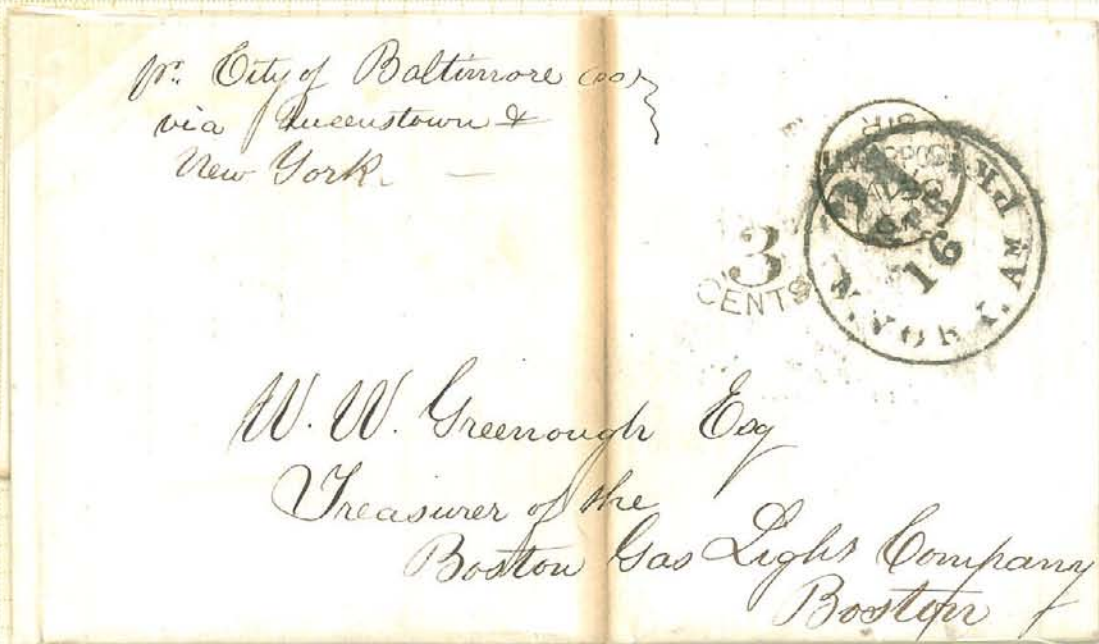 pr. City of Baltimore
via Queenstown &
New York
3
CENTS
N. YORK AM PKT
16
W. W. Greenough Esq
Treasurer of the
Boston Gas Light Company
Boston